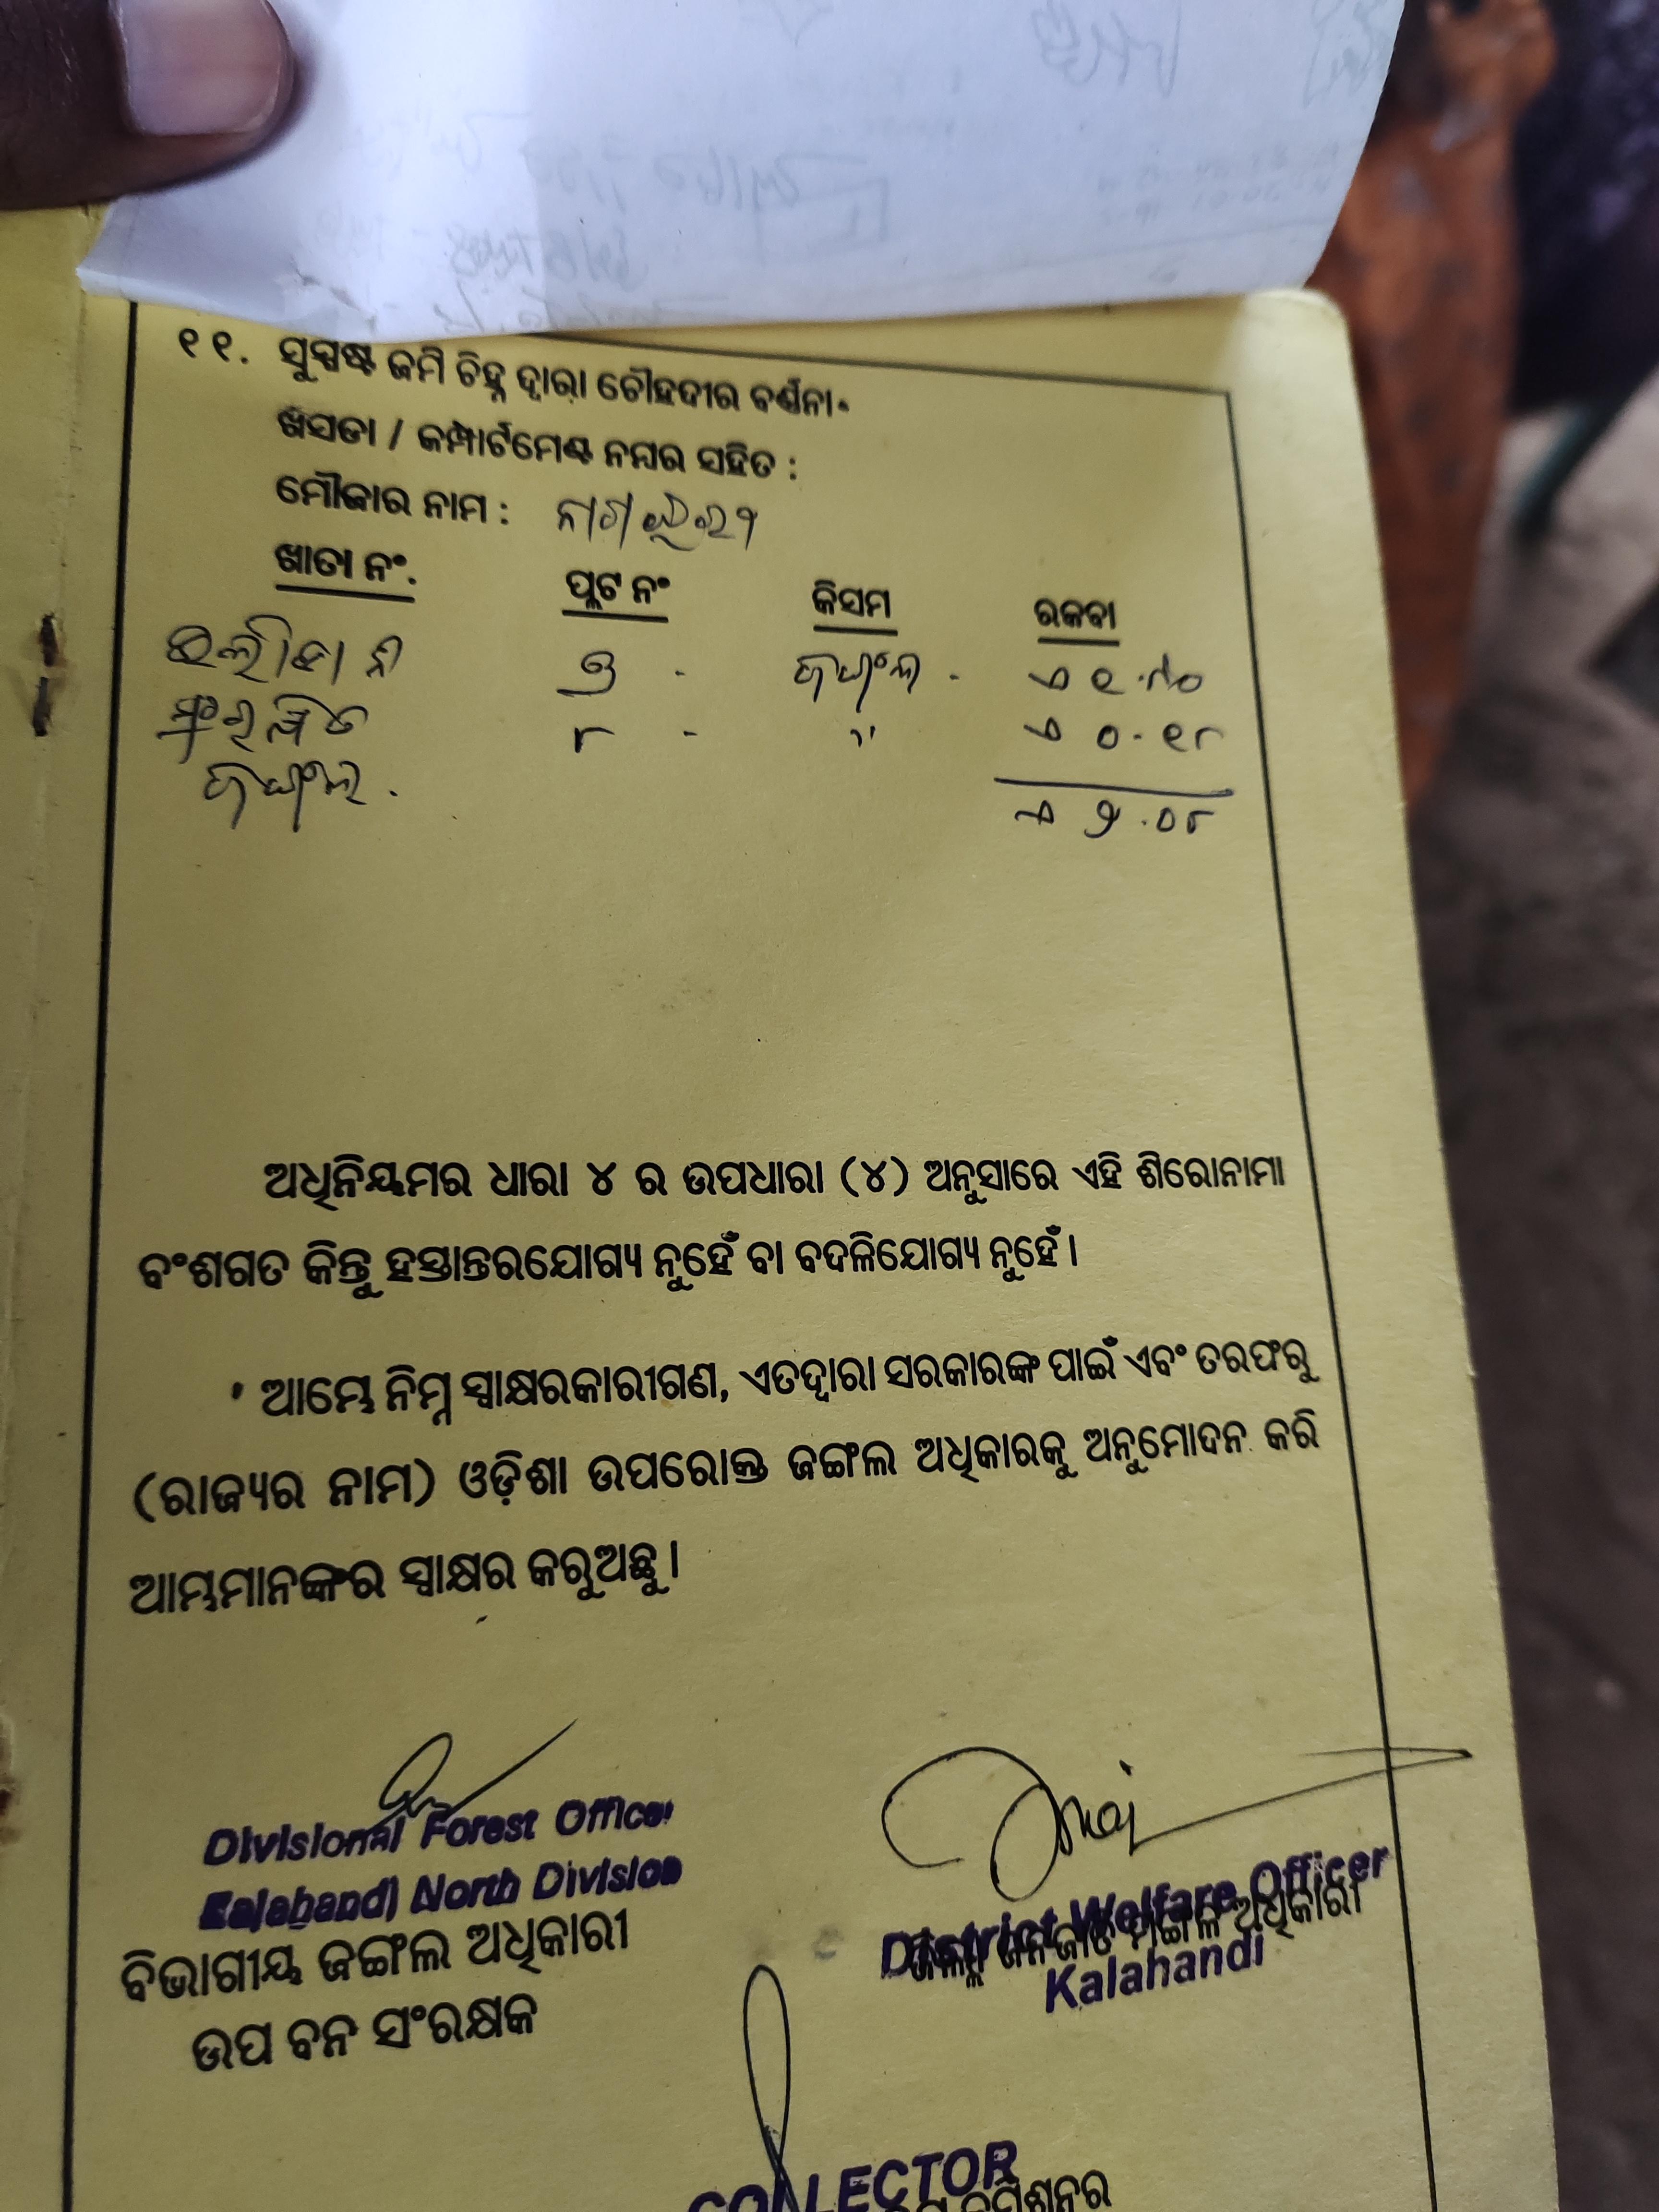 ୧୧. ସୁସ୍ପଷ୍ଟ ଜମି ଚିହ୍ନ ଦ୍ୱାରା ଚୌହଦୀର ବର୍ଣ୍ଣନା.
ଖସଡା / କମ୍ପାର୍ଟମେଣ୍ଟ ନମ୍ବର ସହିତ :
ମୌଜାର ନାମ :
ଖାତା ନଂ. ପ୍ଲଟ ନଂ କିସମ ରକବା
ଜଙ୍ଗଲ - ଏ ୧.୯୦
ସଂରକ୍ଷିତ ୮ - " ଏ ୦.୧୮
ଜଙ୍ଗଲ.
ଏ ୨.୦୮
ଅଧିନିୟମର ଧାରା ୪ ର ଉପଧାରା (୪) ଅନୁସାରେ ଏହି ଶିରୋନାମା
ବଂଶଗତ କିନ୍ତୁ ହସ୍ତାନ୍ତରଯୋଗ୍ୟ ନୁହେଁ ବା ବଦଳିଯୋଗ୍ୟ ନୁହେଁ।
ଆମ୍ଭେ ନିମ୍ନ ସ୍ୱାକ୍ଷରକାରୀଗଣ, ଏତଦ୍ୱାରା ସରକାରଙ୍କ ପାଇଁ ଏବଂ ତରଫରୁ
(ରାଜ୍ୟର ନାମ) ଓଡ଼ିଶା ଉପରୋକ୍ତ ଜଙ୍ଗଲ ଅଧିକାରକୁ ଅନୁମୋଦନ କରି
ଆମ୍ଭମାନଙ୍କର ସ୍ୱାକ୍ଷର କରୁଅଛୁ।
Divisional Forest Officer
Kalahandi North Division
ବିଭାଗୀୟ ଜଙ୍ଗଲ ଅଧିକାରୀ
ଉପ ବନ ସଂରକ୍ଷକ
District Welfare Officer
ଜିଲ୍ଲା ଜନଜାତି ମଙ୍ଗଳ ଅଧିକାରୀ
Kalahandi
COLLECTOR